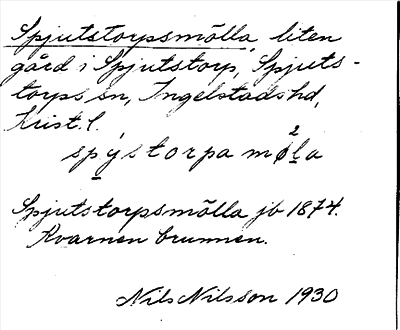 Spjutstorpsmölla, liten
gård i Spjutstorp, Spjuts-
torps sn, Ingelstads hd,
Krist. l.
spýstorpa møla
Spjutstorpsmölla jb 1874.
Kvarnen brunnen.
Nils Nilsson 1930